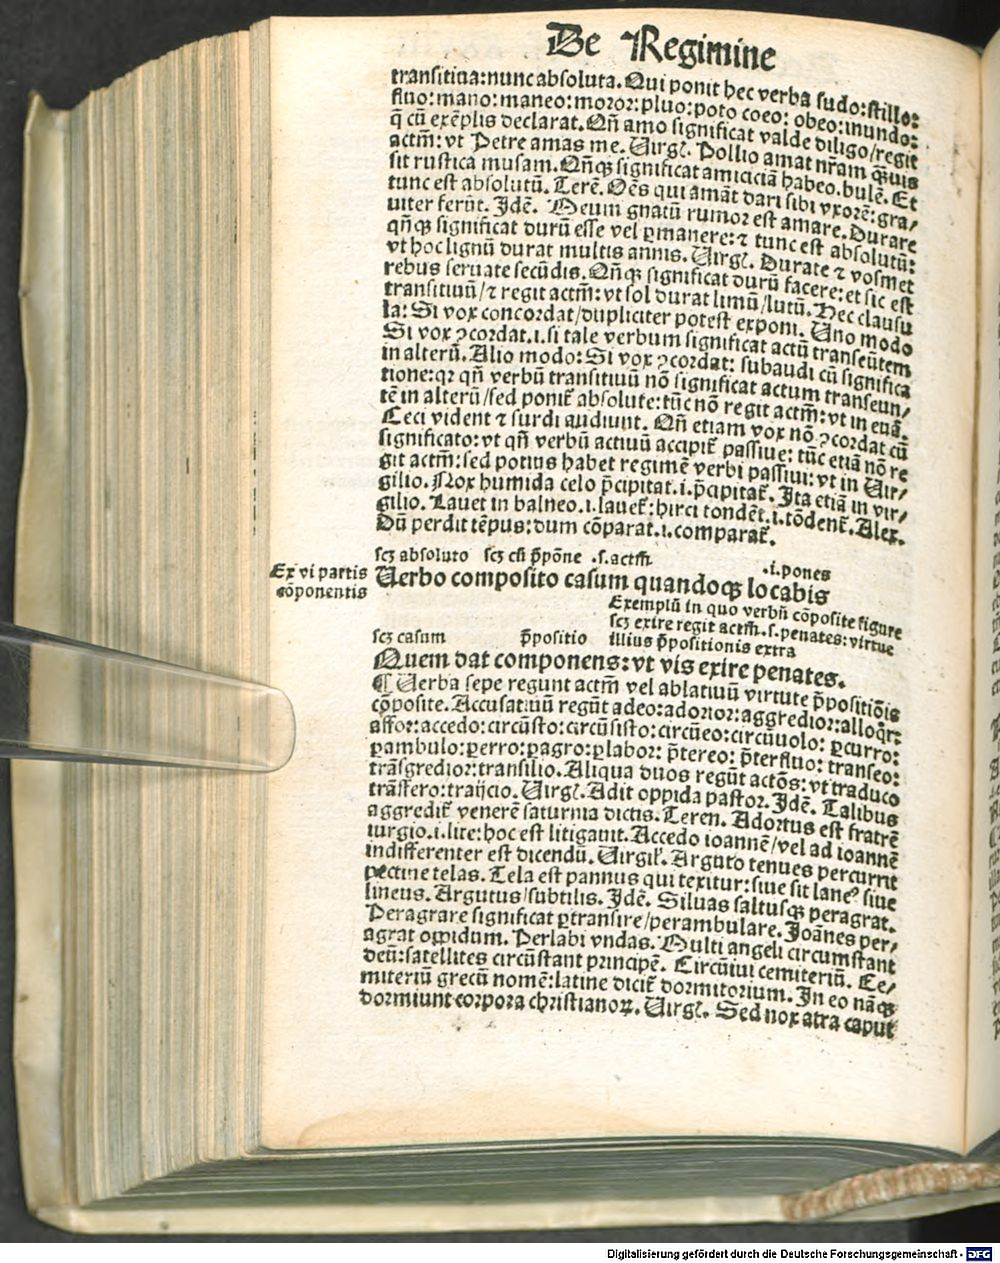 De Regimine
transitiua:nunc absoluta. Qui ponit hec verba sudo:stillo:
fluo:mano:maneo:moror:pluo:poto coeo: obeo:inundo:
q̃ cũ exẽplis declarat. Qñ amo significat valde diligo/regit
actm̃: vt Petre amas me. Uirgl. Pollio amat nr̃am q̃uis
sit rustica musam. Qñqꝫ significat amiciciã habeo.bulẽ. Et
tunc est absolutũ. Terẽ. Oẽs qui amãt dari sibi vxorẽ:gra/
uiter ferũt. Idẽ. Meum gnatũ rumor est amare. Durare
qñqꝫ significat durũ esse vel ꝑmanere:⁊ tunc est absolutũ:
vt hoc lignũ durat multis annis. Uirgl. Durate ⁊ vosmet
rebus seruate secũdis. Qñqꝫ significat durũ facere: et sic est
transitiuũ/⁊ regit actm̃: vt sol durat limũ/lutũ. Hec clausu
la: Si vox concordat/dupliciter potest exponi. Uno modo
Si vox ꝯcordat.i.si tale verbum significat actũ transeũtem
in alterũ. Alio modo: Si vox ꝯcordat: subaudi cũ significa
tione:qꝛ qñ verbũ transitiuũ nõ significat actum transeun/
tẽ in alterũ/sed ponit̃ absolute:tũc nõ regit actm̃: vt in euã.
Ceci vident ⁊ surdi audiunt. Qñ etiam vox nõ ꝯcordat cũ
significato: vt qñ verbũ actiuũ accipit̃ passiue: tũc etiã nõ re
git actm̃: sed potius habet regimẽ verbi passiui: vt in Uir/
gilio. Nox humida celo p̃cipitat.i.p̃cipitat̃. Ita etiã in vir/
gilio. Lauet in balneo.i.lauet̃: hirci tondẽt.i.tõdent̃. Alex.
Dũ perdit tẽpus: dum cõparat.i.comparat̃.
scꝫ absoluto scꝫ cũ p̃põne .s.actm̃ .i.pones
Ex vi partis
cõponentis
Uerbo composito casum quandoqꝫ locabis
Exemplũ in quo verbũ cõposite figure
scꝫ exire regit actm̃.s.penates: virtue
scꝫ casum p̃positio illius p̃positionis extra
Quem dat componens: vt vis exire penates.
¶ Uerba sepe regunt actm̃ vel ablatiuũ virtute p̃positiõis
cõposite. Accusatiuũ regũt adeo:adorior:aggredior:alloq̃r:
affor:accedo:circũsto:circũsisto:circũeo:circũuolo: ꝑcurro:
ꝑambulo:ꝑerro:ꝑagro:ꝑlabor: p̃tereo: p̃terfluo: transeo:
trãsgredior:transilio. Aliqua duos regũt actõs: vt traduco
trãsfero:traijcio. Uirgl. Adit oppida pastor. Idẽ. Talibus
aggredit̃ venerẽ saturnia dictis. Teren. Adortus est fratrẽ
iurgio.i.lite: hoc est litigauit. Accedo ioannẽ/vel ad ioannẽ
indifferenter est dicendũ. Uirgil̃. Arguto tenues percurrit
pectine telas. Tela est pannus qui texitur: siue sit laneꝰ siue
lineus. Argutus/subtilis. Idẽ. Siluas saltusqꝫ peragrat.
Peragrare significat ꝑtransire/perambulare. Joãnes per/
agrat oppidum. Perlabi vndas. Multi angeli circumstant
deũ: satellites circũstant principẽ. Circũiui cemiteriũ. Ce/
miteriũ grecũ nomẽ: latine dicit̃ dormitorium. In eo nãqꝫ
dormiunt corpora christianoꝝ. Uirgl. Sed nox atra caput
Digitalisierung gefördert durch die Deutsche Forschungsgemeinschaft - DFG